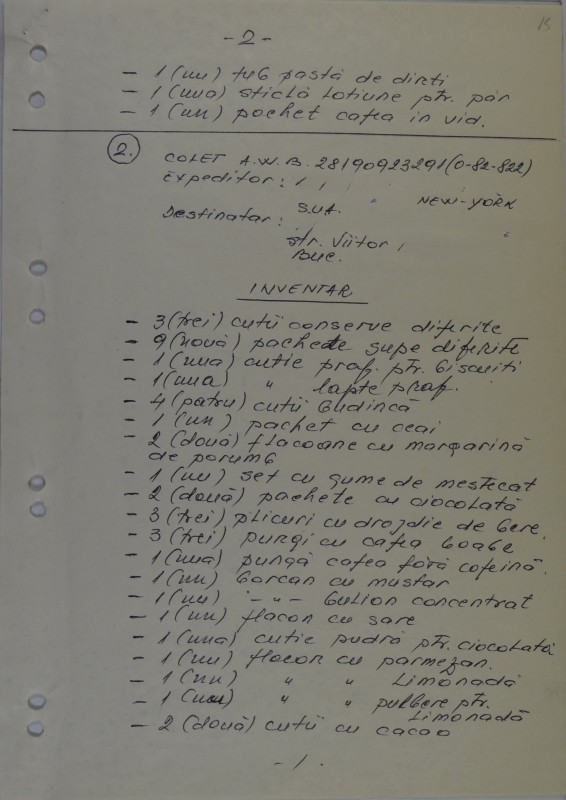 - 2 -
- 1 (un) tub pastă de dinti
- 1 (una) sticlă lotiune ptr. păr
- 1 (un) pachet cafea in vid.
2. COLET A.W.B. 28190923291 (0-82-822)
Expeditor:
S.U.A. NEW-YORK
Destinatar:
str. Viitor,
Buc.
INVENTAR
- 3 (trei) cutii conserve diferite
- 9 (nouă) pachete supe diferite
- 1 (una) cutie praf. ptr. biscuiti
- 1 (una) " lapte praf.
- 4 (patru) cutii budincă
- 1 (un) pachet cu ceai
- 2 (două) flacoane cu margarină
de porumb
- 1 (un) set cu gume de mestecat
- 2 (două) pachete cu ciocolată
- 3 (trei) plicuri cu drojdie de bere.
- 3 (trei) pungi cu cafea boabe
- 1 (una) pungă cafea fără cofeină.
- 1 (un) borcan cu mustar
- 1 (un) -"- bulion concentrat
- 1 (un) flacon cu sare
- 1 (una) cutie pudră ptr. ciocolată
- 1 (un) flacon cu parmezan.
- 1 (un) " " Limonadă
- 1 (un) " " pulbere ptr.
Limonadă
- 2 (două) cutii cu cacao
- / .